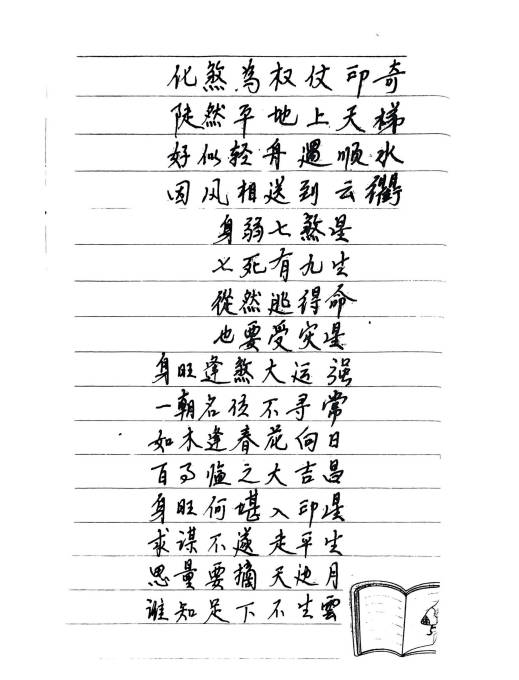 化煞為权仗印奇
陡然平地上天梯
好似轻舟遇顺水
因风相送到云衢
身弱七煞星
七死有九生
從然逃得命
也要受灾星
身旺逢煞大运强
一朝名侯不寻常
如木逢春花向日
百了临之大吉昌
身旺何堪入印星
求谋不遂走平生
思量要摘天边月
谁知足下不生雲